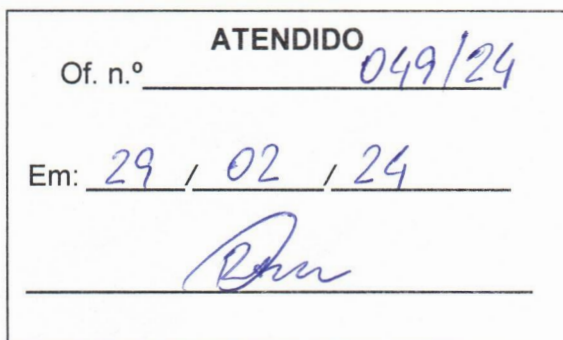 ATENDIDO
Of. n.º 049/24
Em: 29 / 02 / 24